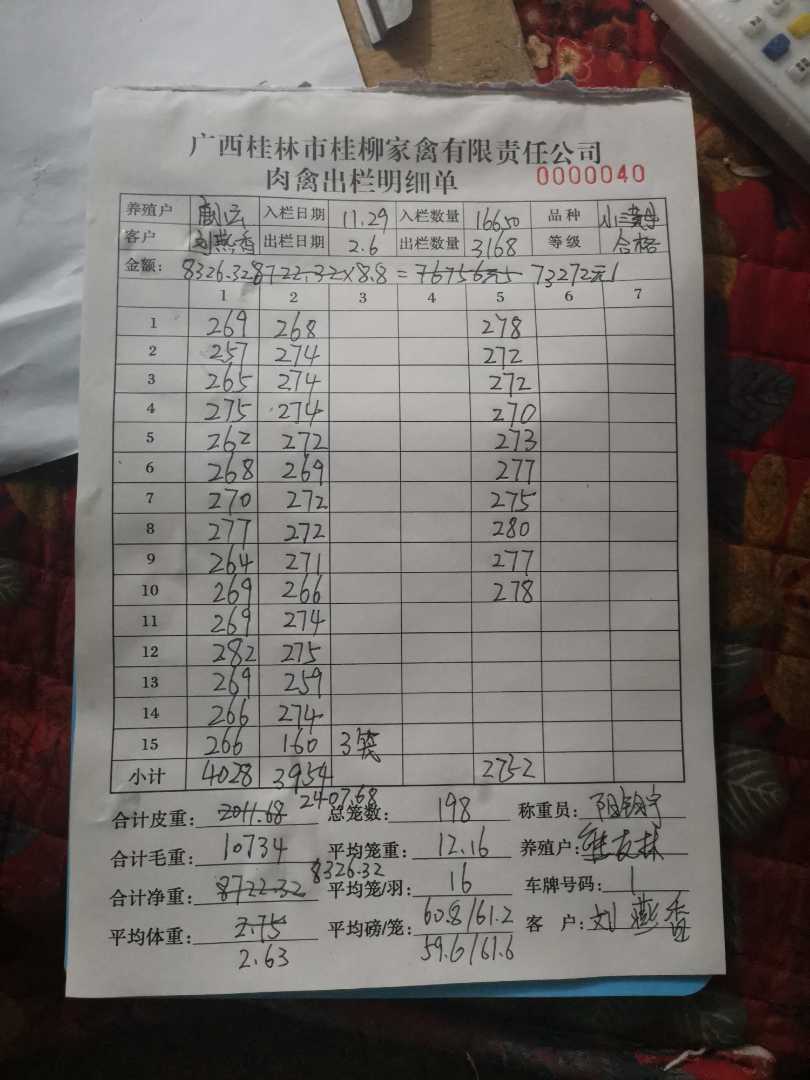 广西桂林市桂柳家禽有限责任公司
肉禽出栏明细单 0000040
养殖户 唐云 入栏日期 11.29 入栏数量 16650 品种
客户 刘燕香 出栏日期 2.6 出栏数量 3168 等级 合格
金额: 8326.32 8722.32×8.8=76756元5 73272元1
1 2 3 4 5 6 7
1 269 268 278
2 257 274 272
3 265 274 272
4 275 274 270
5 262 272 273
6 268 269 277
7 270 272 275
8 277 272 280
9 264 271 277
10 269 266 278
11 269 274
12 282 275
13 269 259
14 266 274
15 266 160 3笼
小计 4028 3954 2752
2407.68
合计皮重: 2011.68 总笼数: 198 称重员:
合计毛重: 10734 平均笼重: 12.16 养殖户:
8326.32
合计净重: 8722.32 平均笼/羽: 16 车牌号码: 1
平均体重: 2.75 平均磅/笼: 60.8/61.2 客 户: 刘燕香
2.63 59.6/61.6